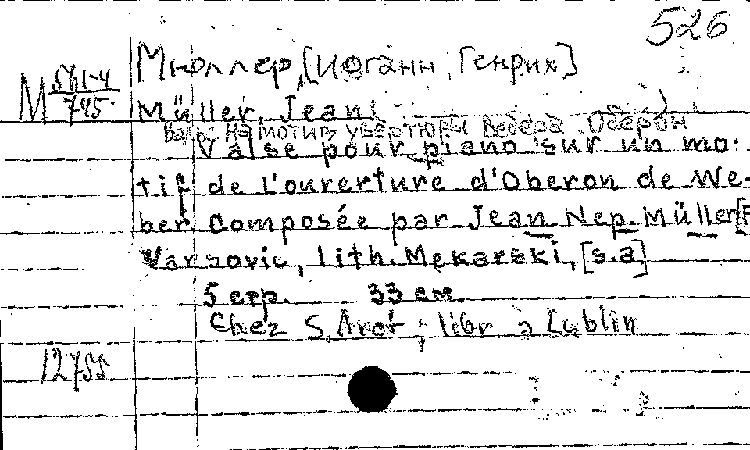 526
Мюллер, [Иоганн, Генрих]
М 581-4
745
Müller, Jean
Вальс на мотив увертюры Вебера Оберон
Valse pour piano sur un mo-
tif de l'ouverture d'Oberon de We-
ber composée par Jean Nep. Müller
Varsovie, lith. Mękarski, [s.a]
5 стр. 33 см.
Chez S. Arct, libr à Lublin
12755